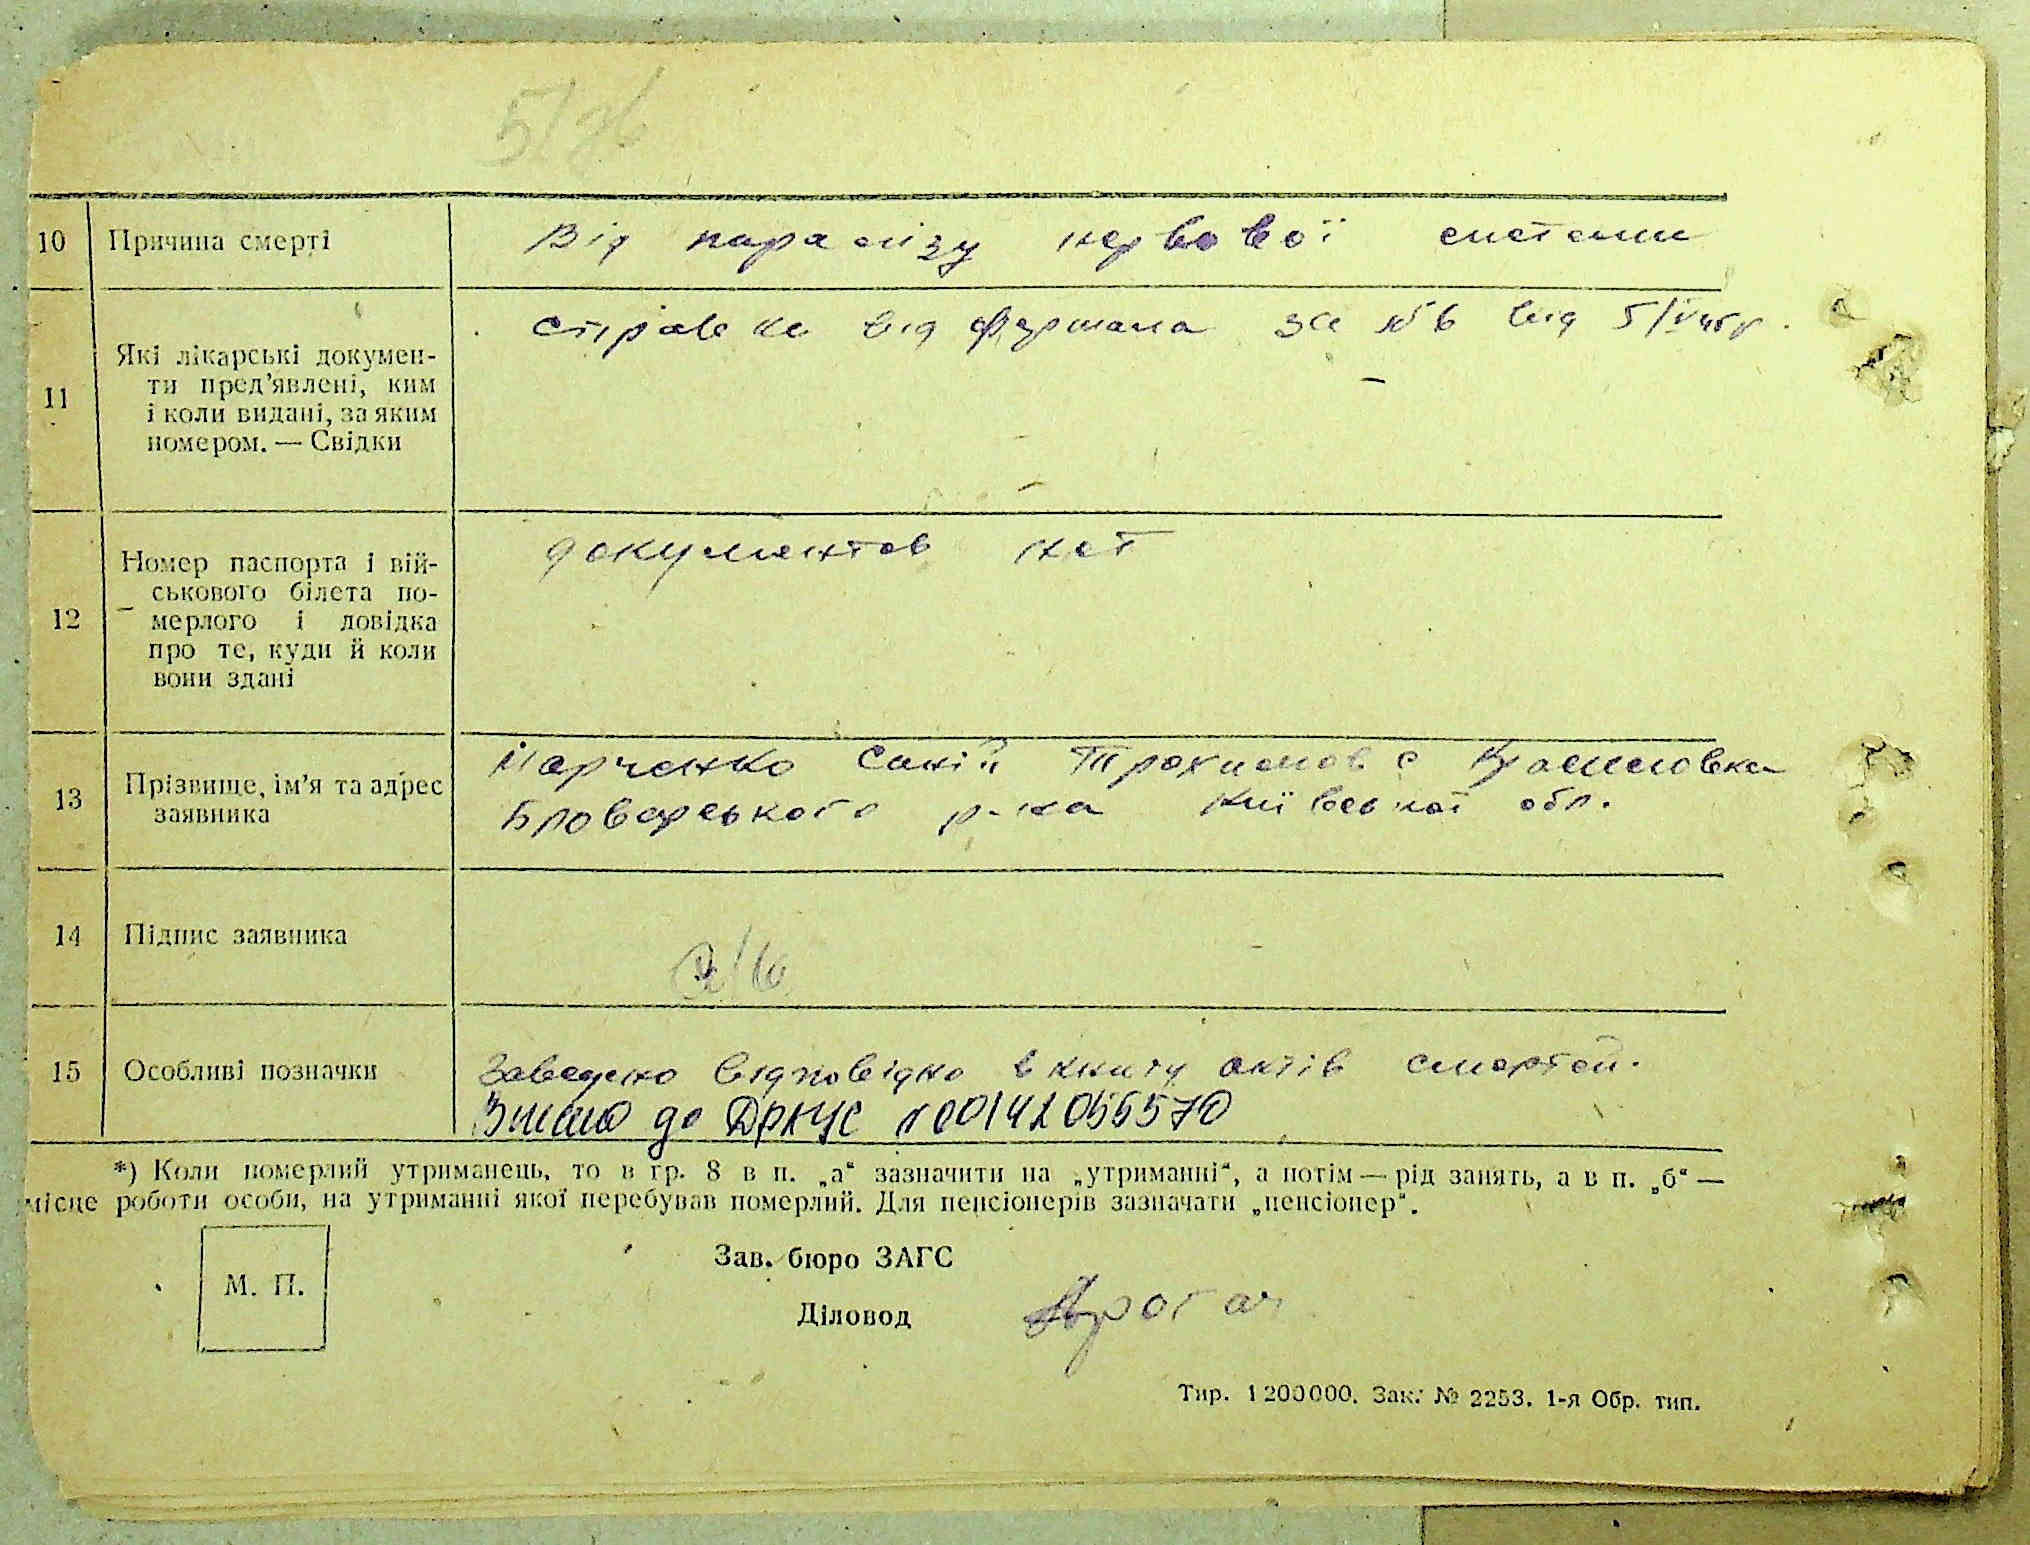 10 Причина смерті Від паралізу нервової системи
11 Які лікарські докумен-
ти пред'явлені, ким
і коли видані, за яким
номером. — Свідки
справка від фершала за №6 від 5/V 45 г.
12 Номер паспорта і вій-
ськового білета по-
мерлого і довідка
про те, куди й коли
вони здані
документов нет
13 Прізвище, ім'я та адрес
заявника
Марченко Трохимов с
Броварського р-на Київської обл.
14 Підпис заявника
15 Особливі позначки
Заведено відповідно в книгу актів смертей.
до ДРАЦС 00142056570
*) Коли померлий утриманець, то в гр. 8 в п. „а“ зазначити на „утриманні“, а потім — рід занять, а в п. „б“ —
місце роботи особи, на утриманні якої перебував померлий. Для пенсіонерів зазначати „пенсіонер“.
М. П.
Зав. бюро ЗАГС
Діловод
Тир. 1 200 000. Зак. № 2253. 1-я Обр. тип.